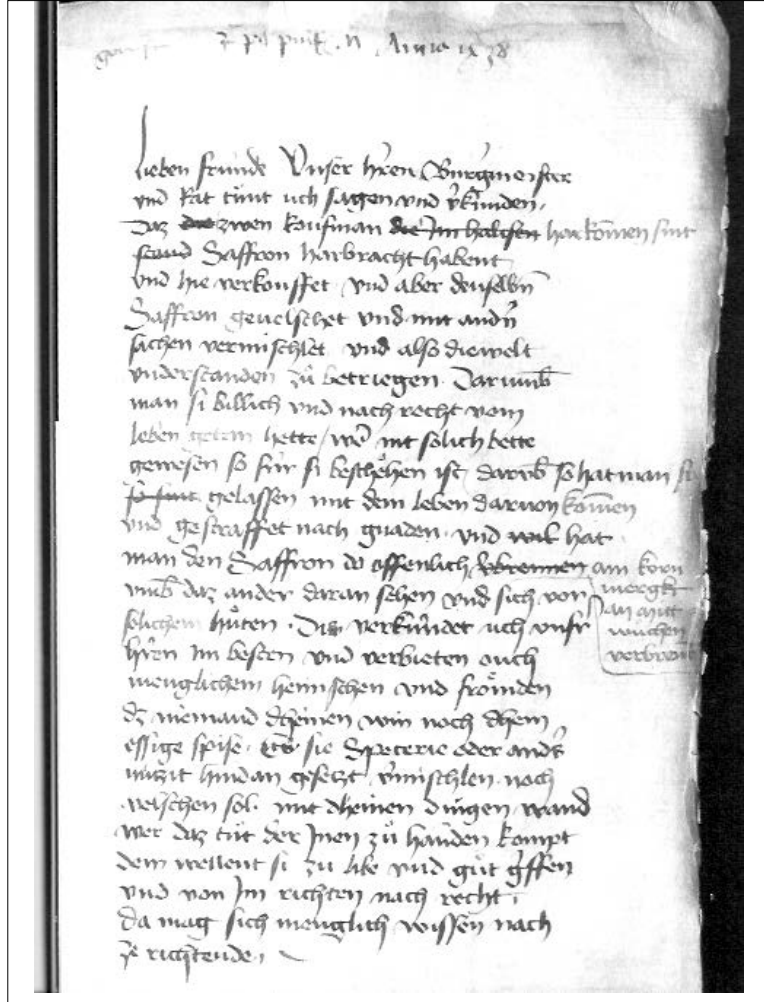 Anno xx 38
Lieben frúnde Unser hr̄en Burgmeister
und Rat túnt úch sagen und v̓kúnden.
Daz die zwen koufman die Jm harkomen sint
Saffron harbracht habent
und hie verkouffet. und aber denselbn̄
Saffron gevelschet und mit andn̄
sachen vermischlet. und also die welt
understanden zů betriegen. Darumb̄
man si billich und nach recht vom
leben getan hette / wer nit solich bette
gewesen so für si beschehen ist darumb̄ so hat man si
gelassen mit dem leben darvon kom̄en
und gestraffet nach gnaden. und wil hat
man den Saffron do offenlich v̓brennen am korn
mergkt
an mitt
wuchen
verbrent
umb̄ daz ander daran sehen und sich vor
solichem hůten. Dis verkúndet úch unsr
hr̄en Jm besten und verbieten ouch
menglichem heimschen und frömden
dz niemand dheinen win noch dhein
essige spise. sie Specerie oder anders
nützit hindan gesetzt v̓mischlen noch
velschen sol. mit dheinen dingen. wand
wer daz tůt der Jnen zů handen kompt
dem wellent si zu libe und gůt griffen
und von Jm richten nach recht.
da mag sich menglich wissen nach
ze richtende.